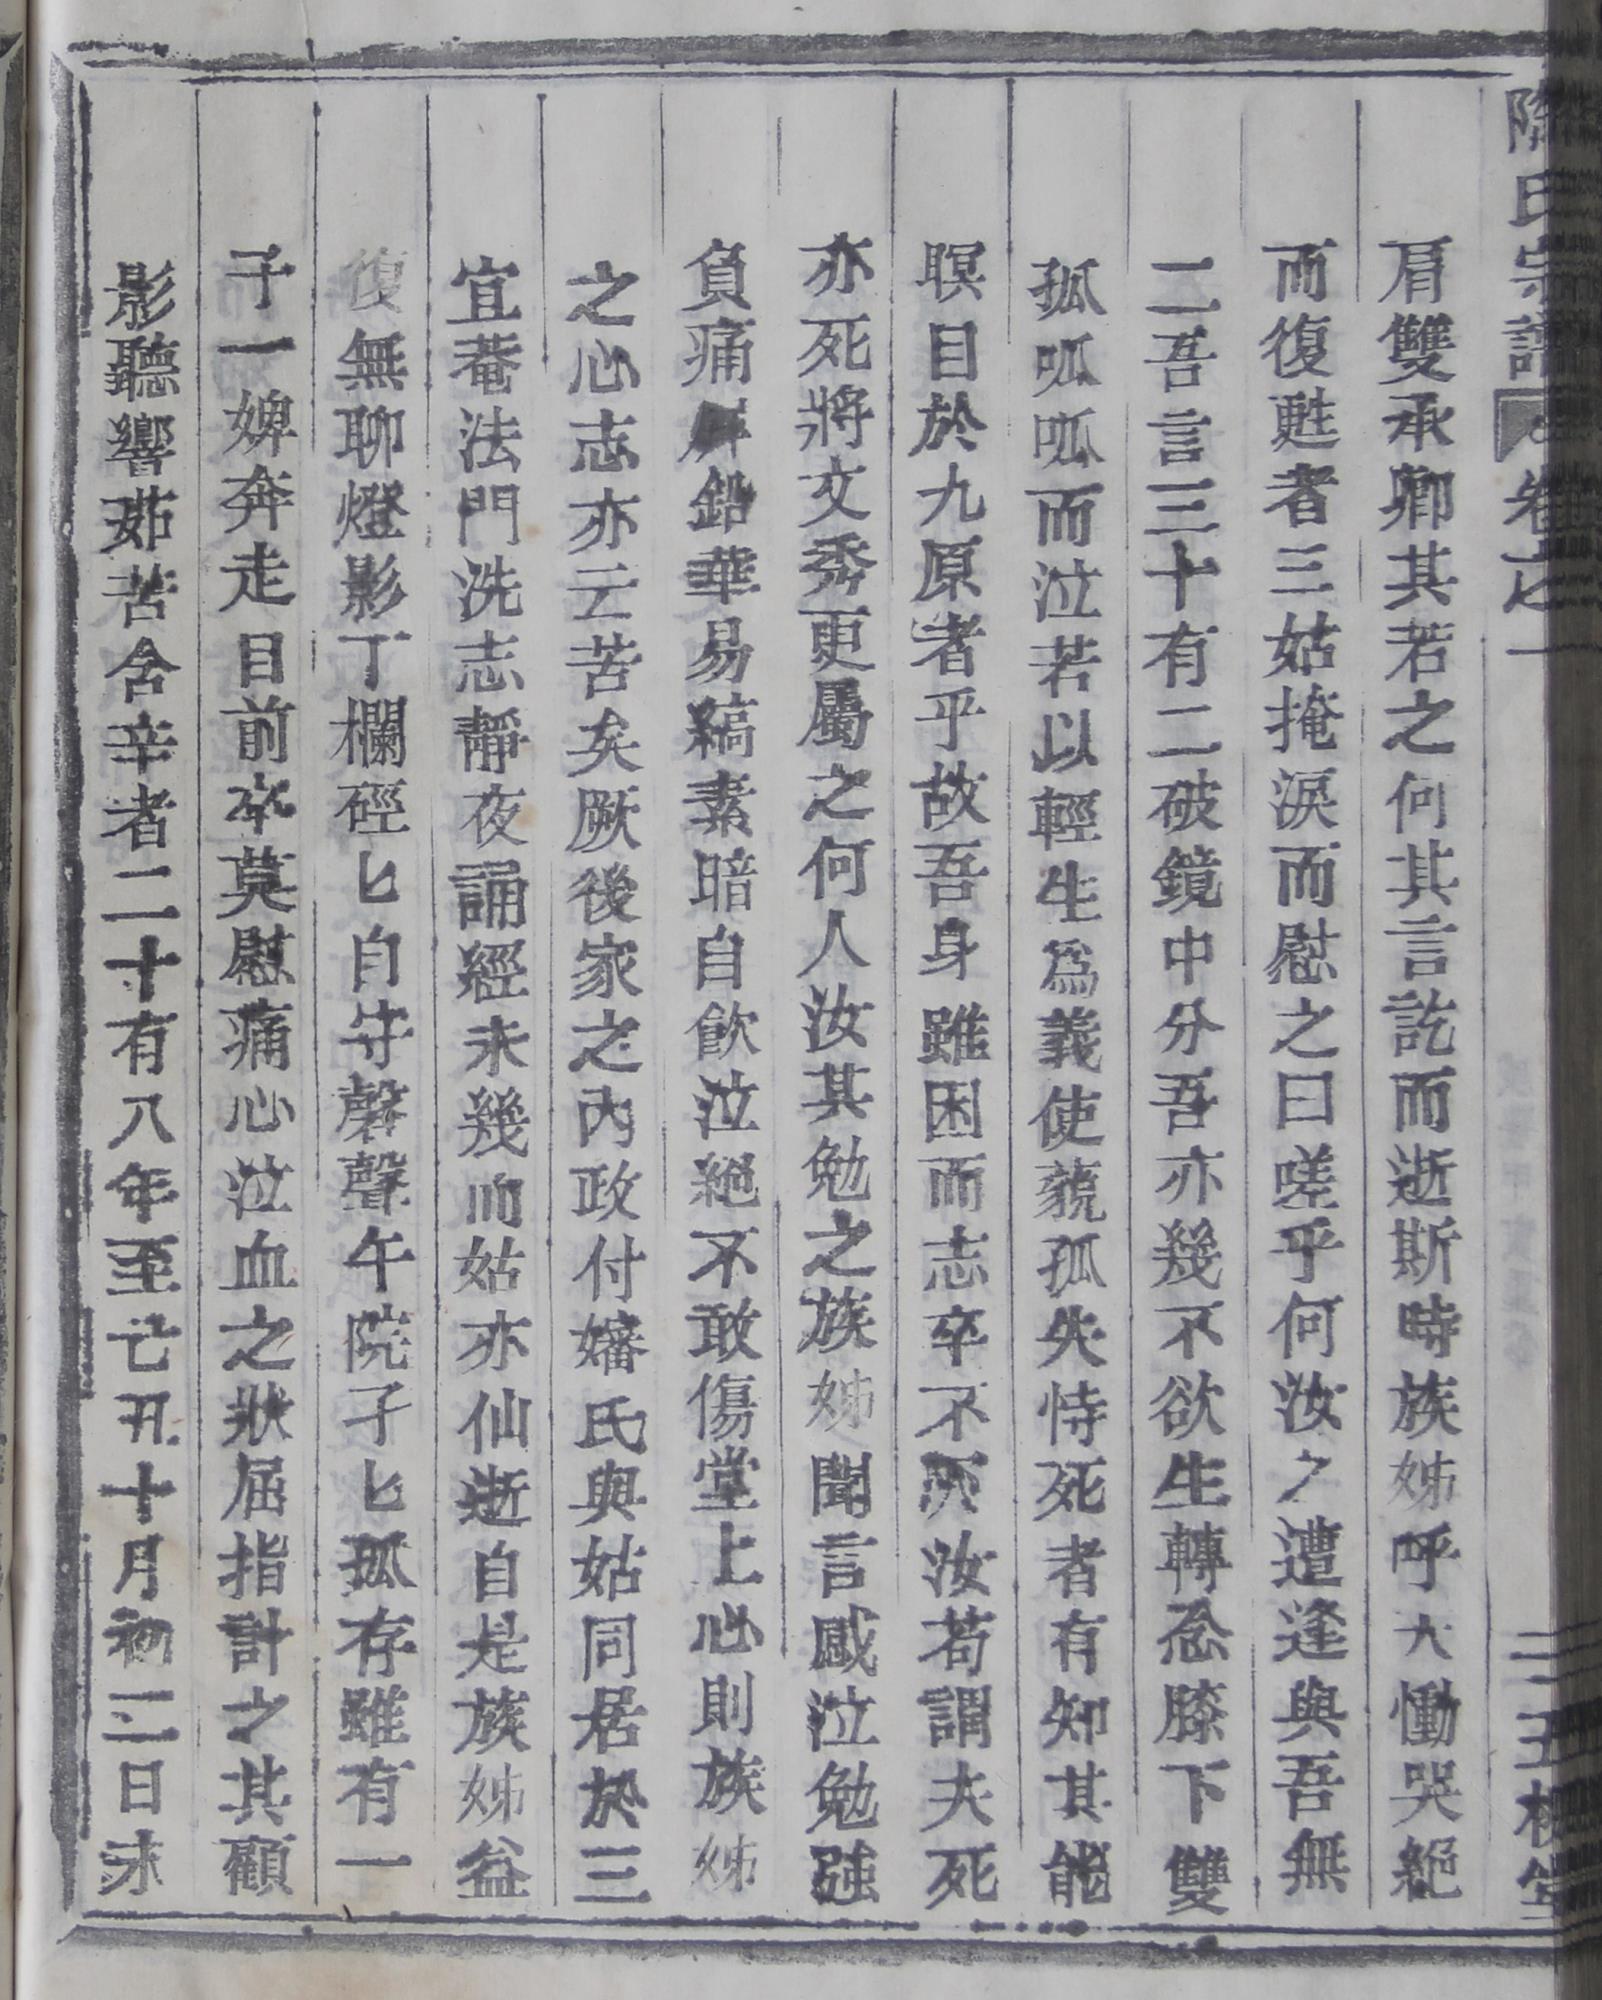 氏宗譜 卷之一 二 五
肩雙承卿其若之何其言訖而逝斯時族姊呼大慟哭絕
而復甦者三姑掩淚而慰之曰嗟乎何汝之遭逢與吾無
二吾言三十有二破鏡中分吾亦幾不欲生轉念膝下雙
孤呱呱而泣若以輕生爲義使藐孤失恃死者有知其能
瞑目於九原者乎故吾身雖困而志卒不灰汝苟謂夫死
亦死將文秀更屬之何人汝其勉之族姊聞言感泣勉强
負痛鉛華易縞素暗自飮泣絕不敢傷堂上心則族姊
之心志亦云苦矣厥後家之內政付嬸氏與姑同居於三
宜菴法門洗志靜夜誦經未幾而姑亦仙逝自是族姊益
復無聊燈影丁欄硜匕自守磬聲午院孑匕孤存雖有一
子一婢奔走目前卒莫慰痛心泣血之狀屈指計之其顧
影聽響茹苦含辛者二十有八年至亡丑十月初二日未